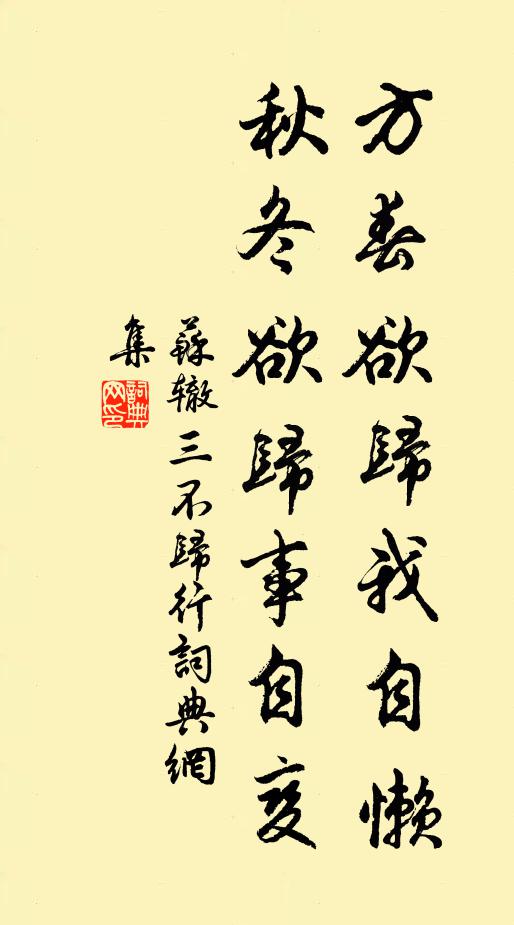 方春欲歸我自懶
秋冬欲歸事自变
蘇辙三不歸行詞典網
集
詞典網印